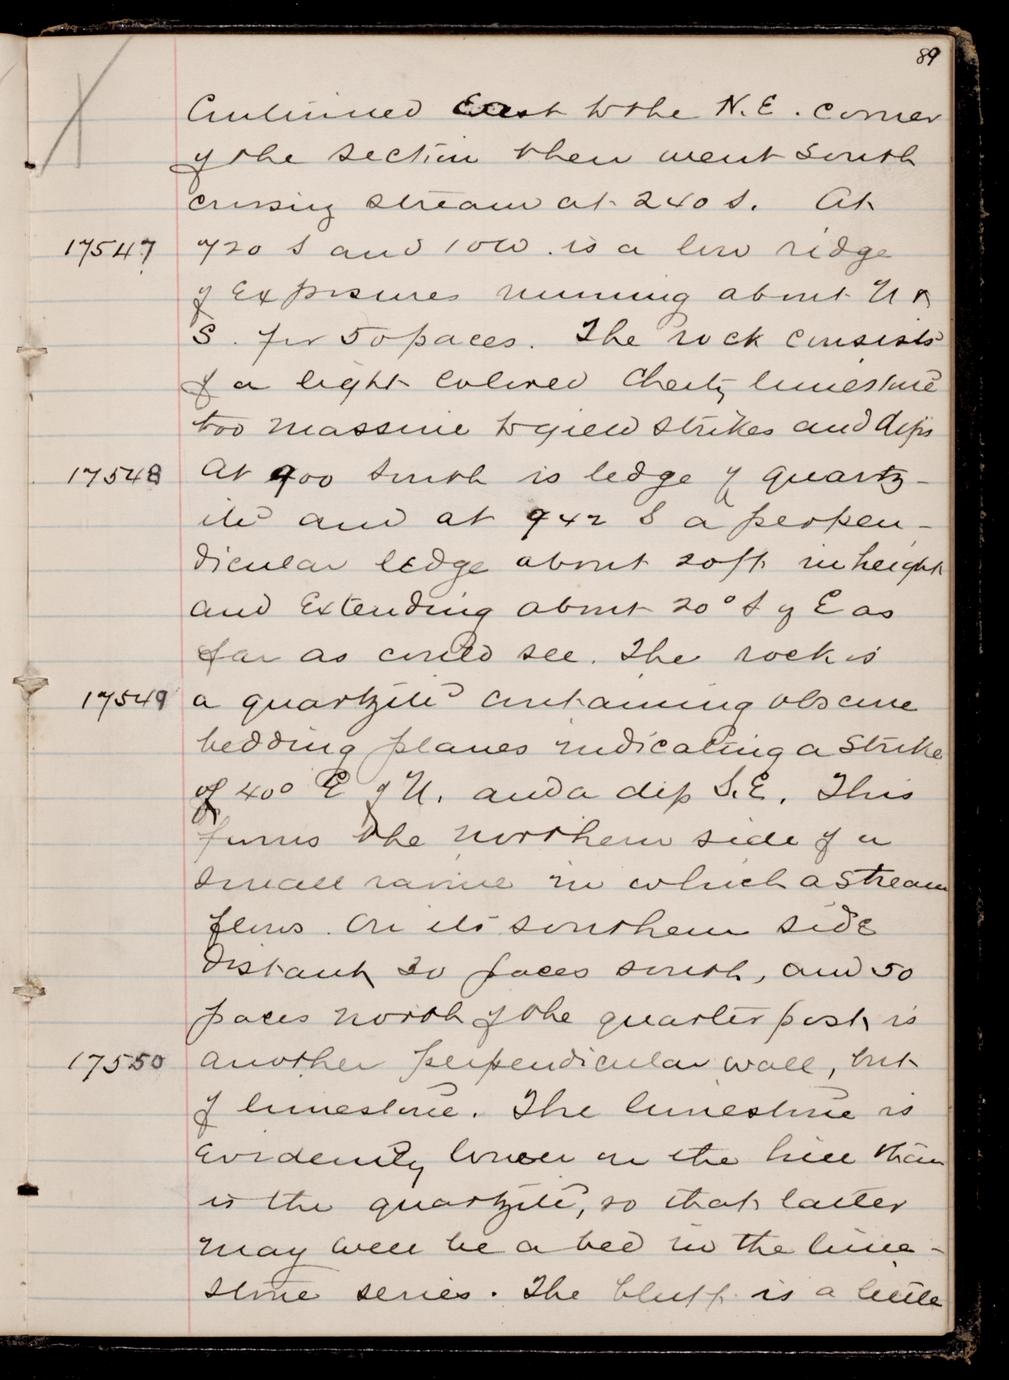 89
Continued East to the N.E. corner
of the section then went South
crossing stream at 240 S. At
17547 720 S and 10W. is a low ridge
of Exposures running about N &
S. for 50 paces. The rock consists
of a light colored Cherty limestone
too massive to yield strikes and dips
17548 At 900 South is ledge of quartz-
ite and at 942 S a perpen-
dicular ledge about 20ft in height
and Extending about 20° S of E as
far as could see. The rock is
17549 a quartzite containing obscure
bedding planes indicating a Strike
of 40° E of N. and a dip S.E. This
forms the northern side of a
small ravine in which a Stream
flows. On its southern side
distant 30 paces south, and 50
paces north of the quarter post, is
17550 another perpendicular wall, but
of limestone. The limestone is
Evidently lower on the hill than
is the quartzite, so that latter
may well be a bed in the lime-
stone series. The bluff is a little